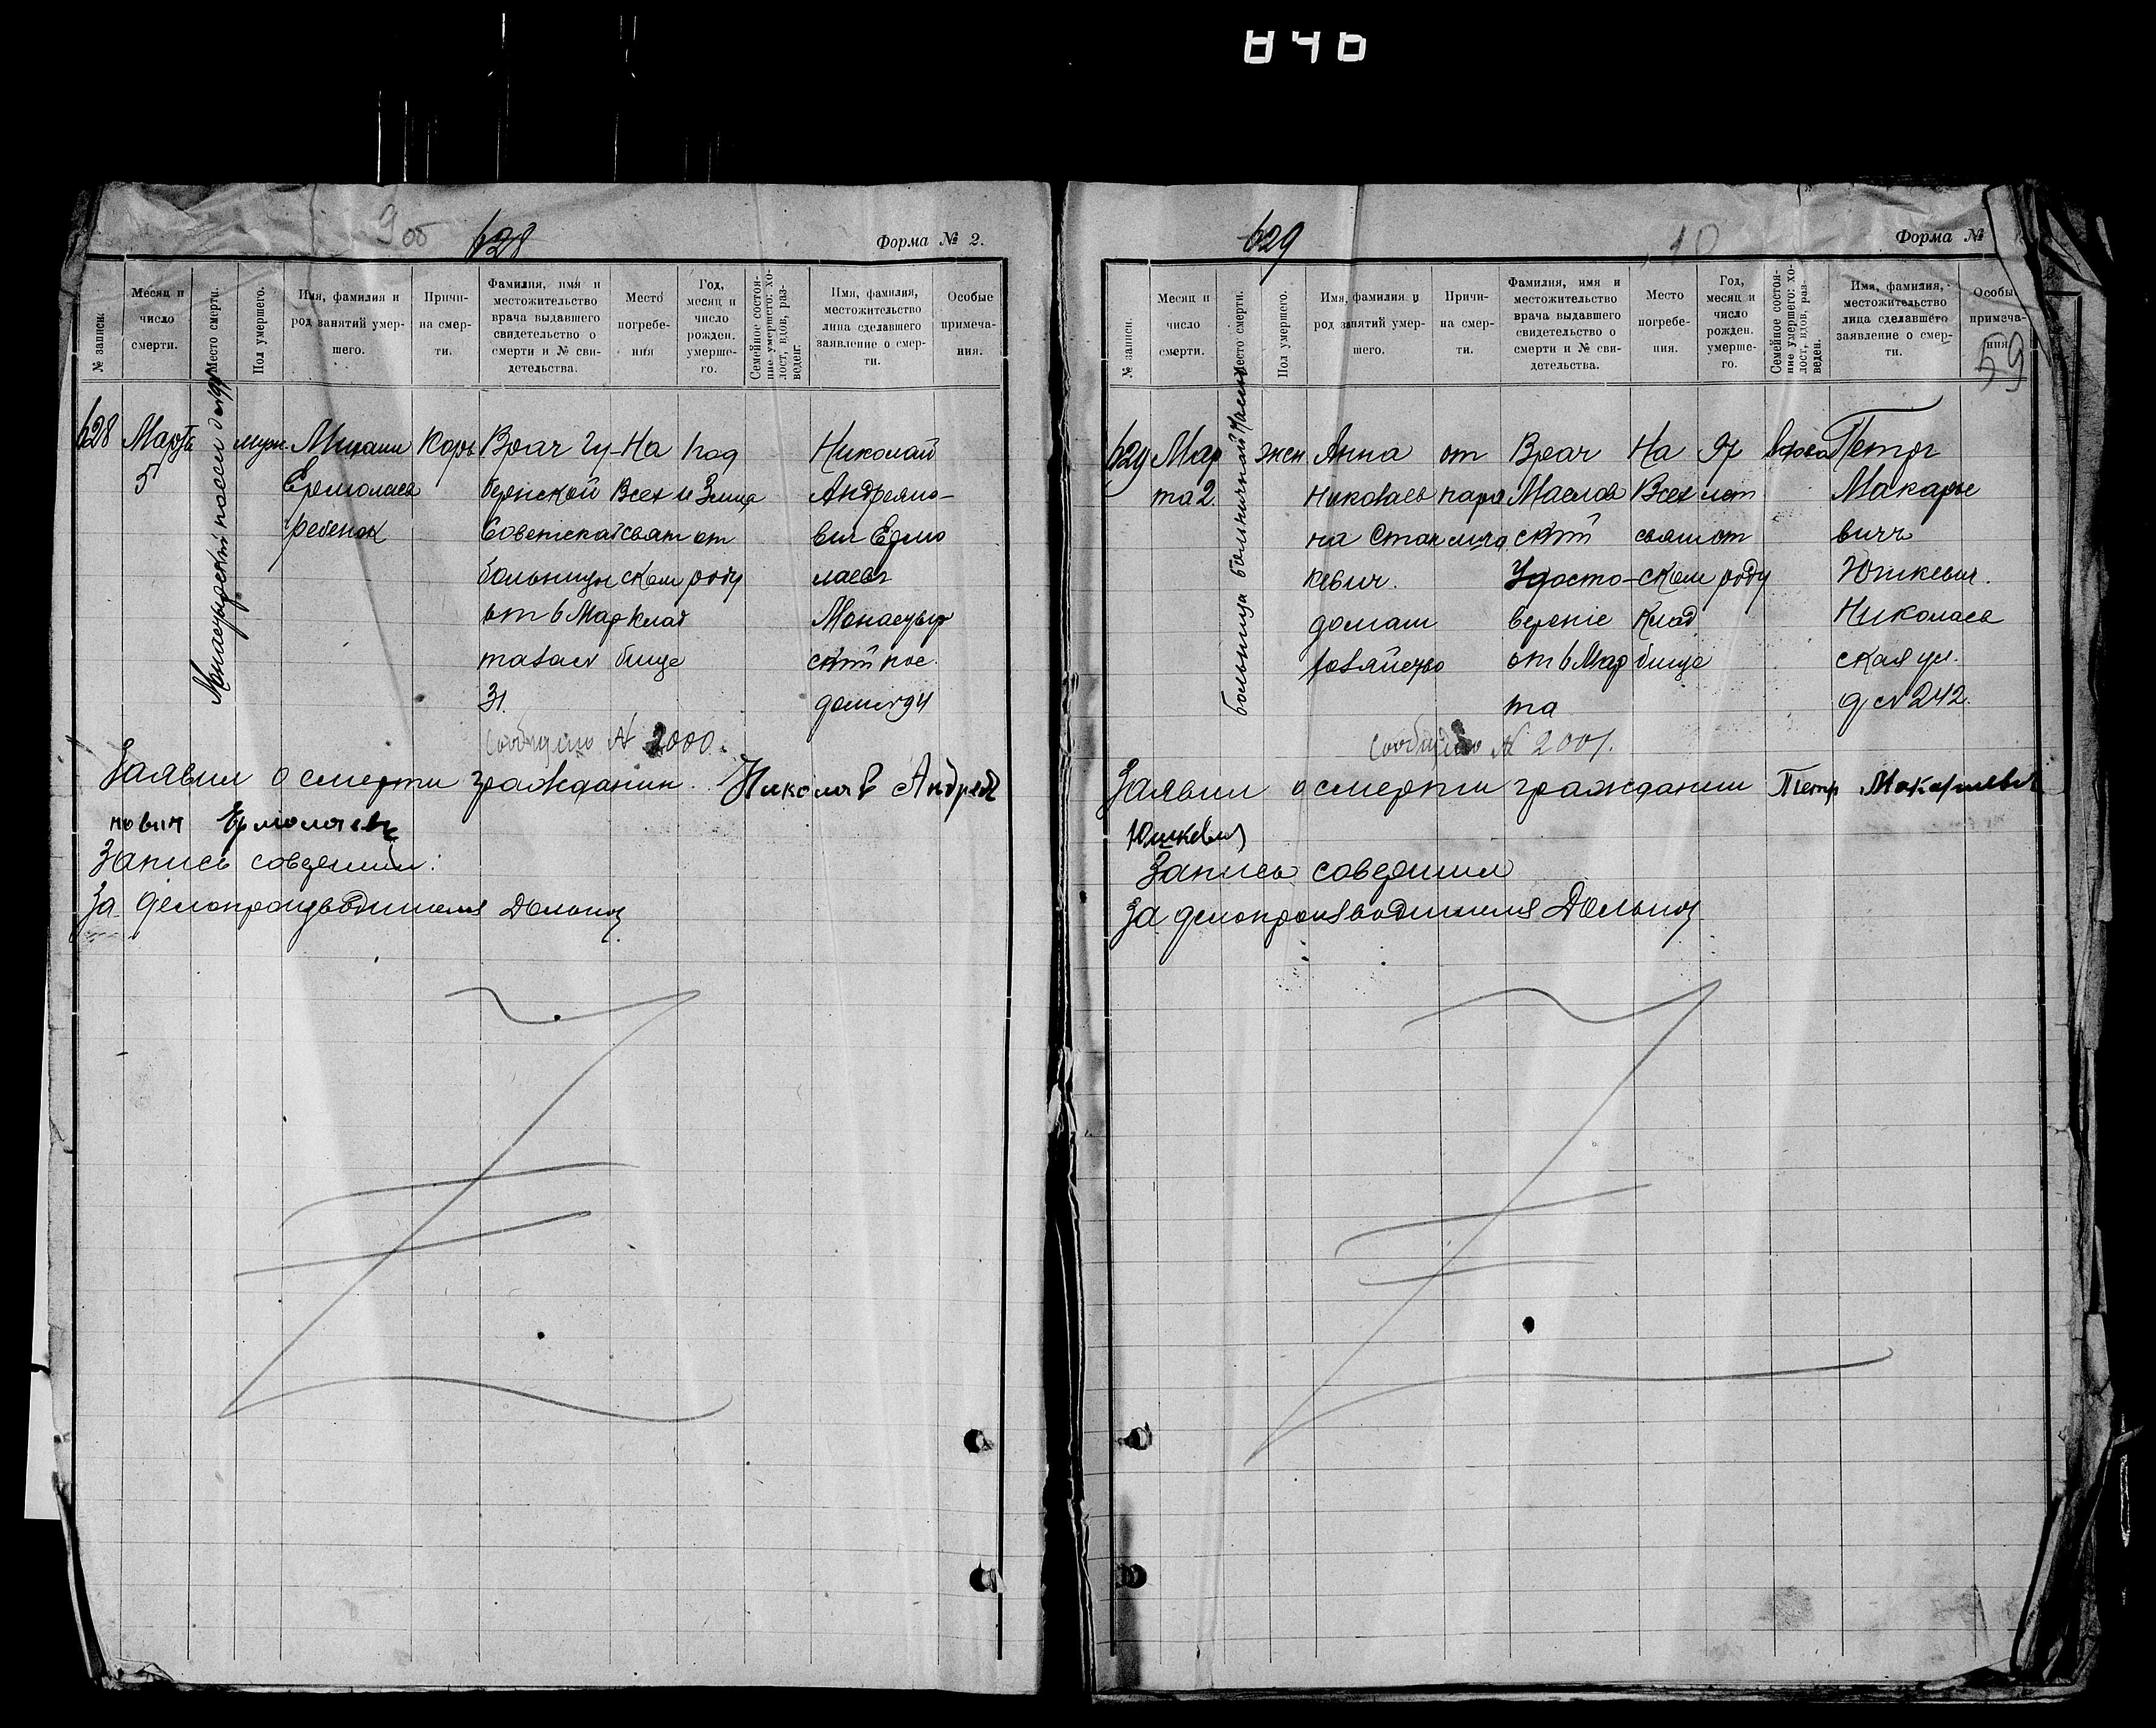 846
9 об
628
Форма № 2.
№ записи.
Месяц и число смерти.
Место смерти.
Пол умершего.
Имя, фамилия и род занятий умершего.
Причина смерти.
Фамилия, имя и местожительство врача выдавшего свидетельство о смерти и № свидетельства.
Место погребения
Год, месяц и число рожден. умершего.
Семейное состояние умершего: холост, вдов, разведен.
Имя, фамилия, местожительство лица сделавшего заявление о смерти.
Особые примечания.
628
Марта
5
муж.
Михаил
Ермолаев
ребенок
Корь
Врач Гу-
бернской
Советской
больницы
от 6 Мар
та за №
31.
На
Всех
свят
ском
клад
бище
Год
и 3 мца
от
роду
Николай
Андреяно-
вич Ермо
лаев
Монастыр
скій пос.
дом № 94
Сообщено № 2000.
Заявил о смерти гражданин. Николай Андрея
нович Ермолаев
Запись совершил:
За делопроизводителя
629
10
Форма №
№ записи.
Месяц и число смерти.
Место смерти.
Пол умершего.
Имя, фамилия и род занятий умершего.
Причина смерти.
Фамилия, имя и местожительство врача выдавшего свидетельство о смерти и № свидетельства.
Место погребения.
Год, месяц и число рожден. умершего.
Семейное состояние умершего: холост, вдов, разведен.
Имя, фамилия, местожительство лица сделавшего заявление о смерти.
Особы примечания
59
629
Мар
та 2.
больница
жен
Анна
Николаев
на Стан
кевич.
домаш
хозяйство
от
пара
лича
Врач
Маслов
скій
Удосто-
вереніе
от 6 Мар
та
На
Всех
свят
ском
клад
бище
97
лет
от
роду
вдова
Петр
Макарье
вич
Юшкевич.
Николаев
ская ул.
д № 242.
Сообщено № 2001.
Заявил о смерти гражданин Петр Макарьевич
Юшкевич
Запись совершил
За делопроизводителя